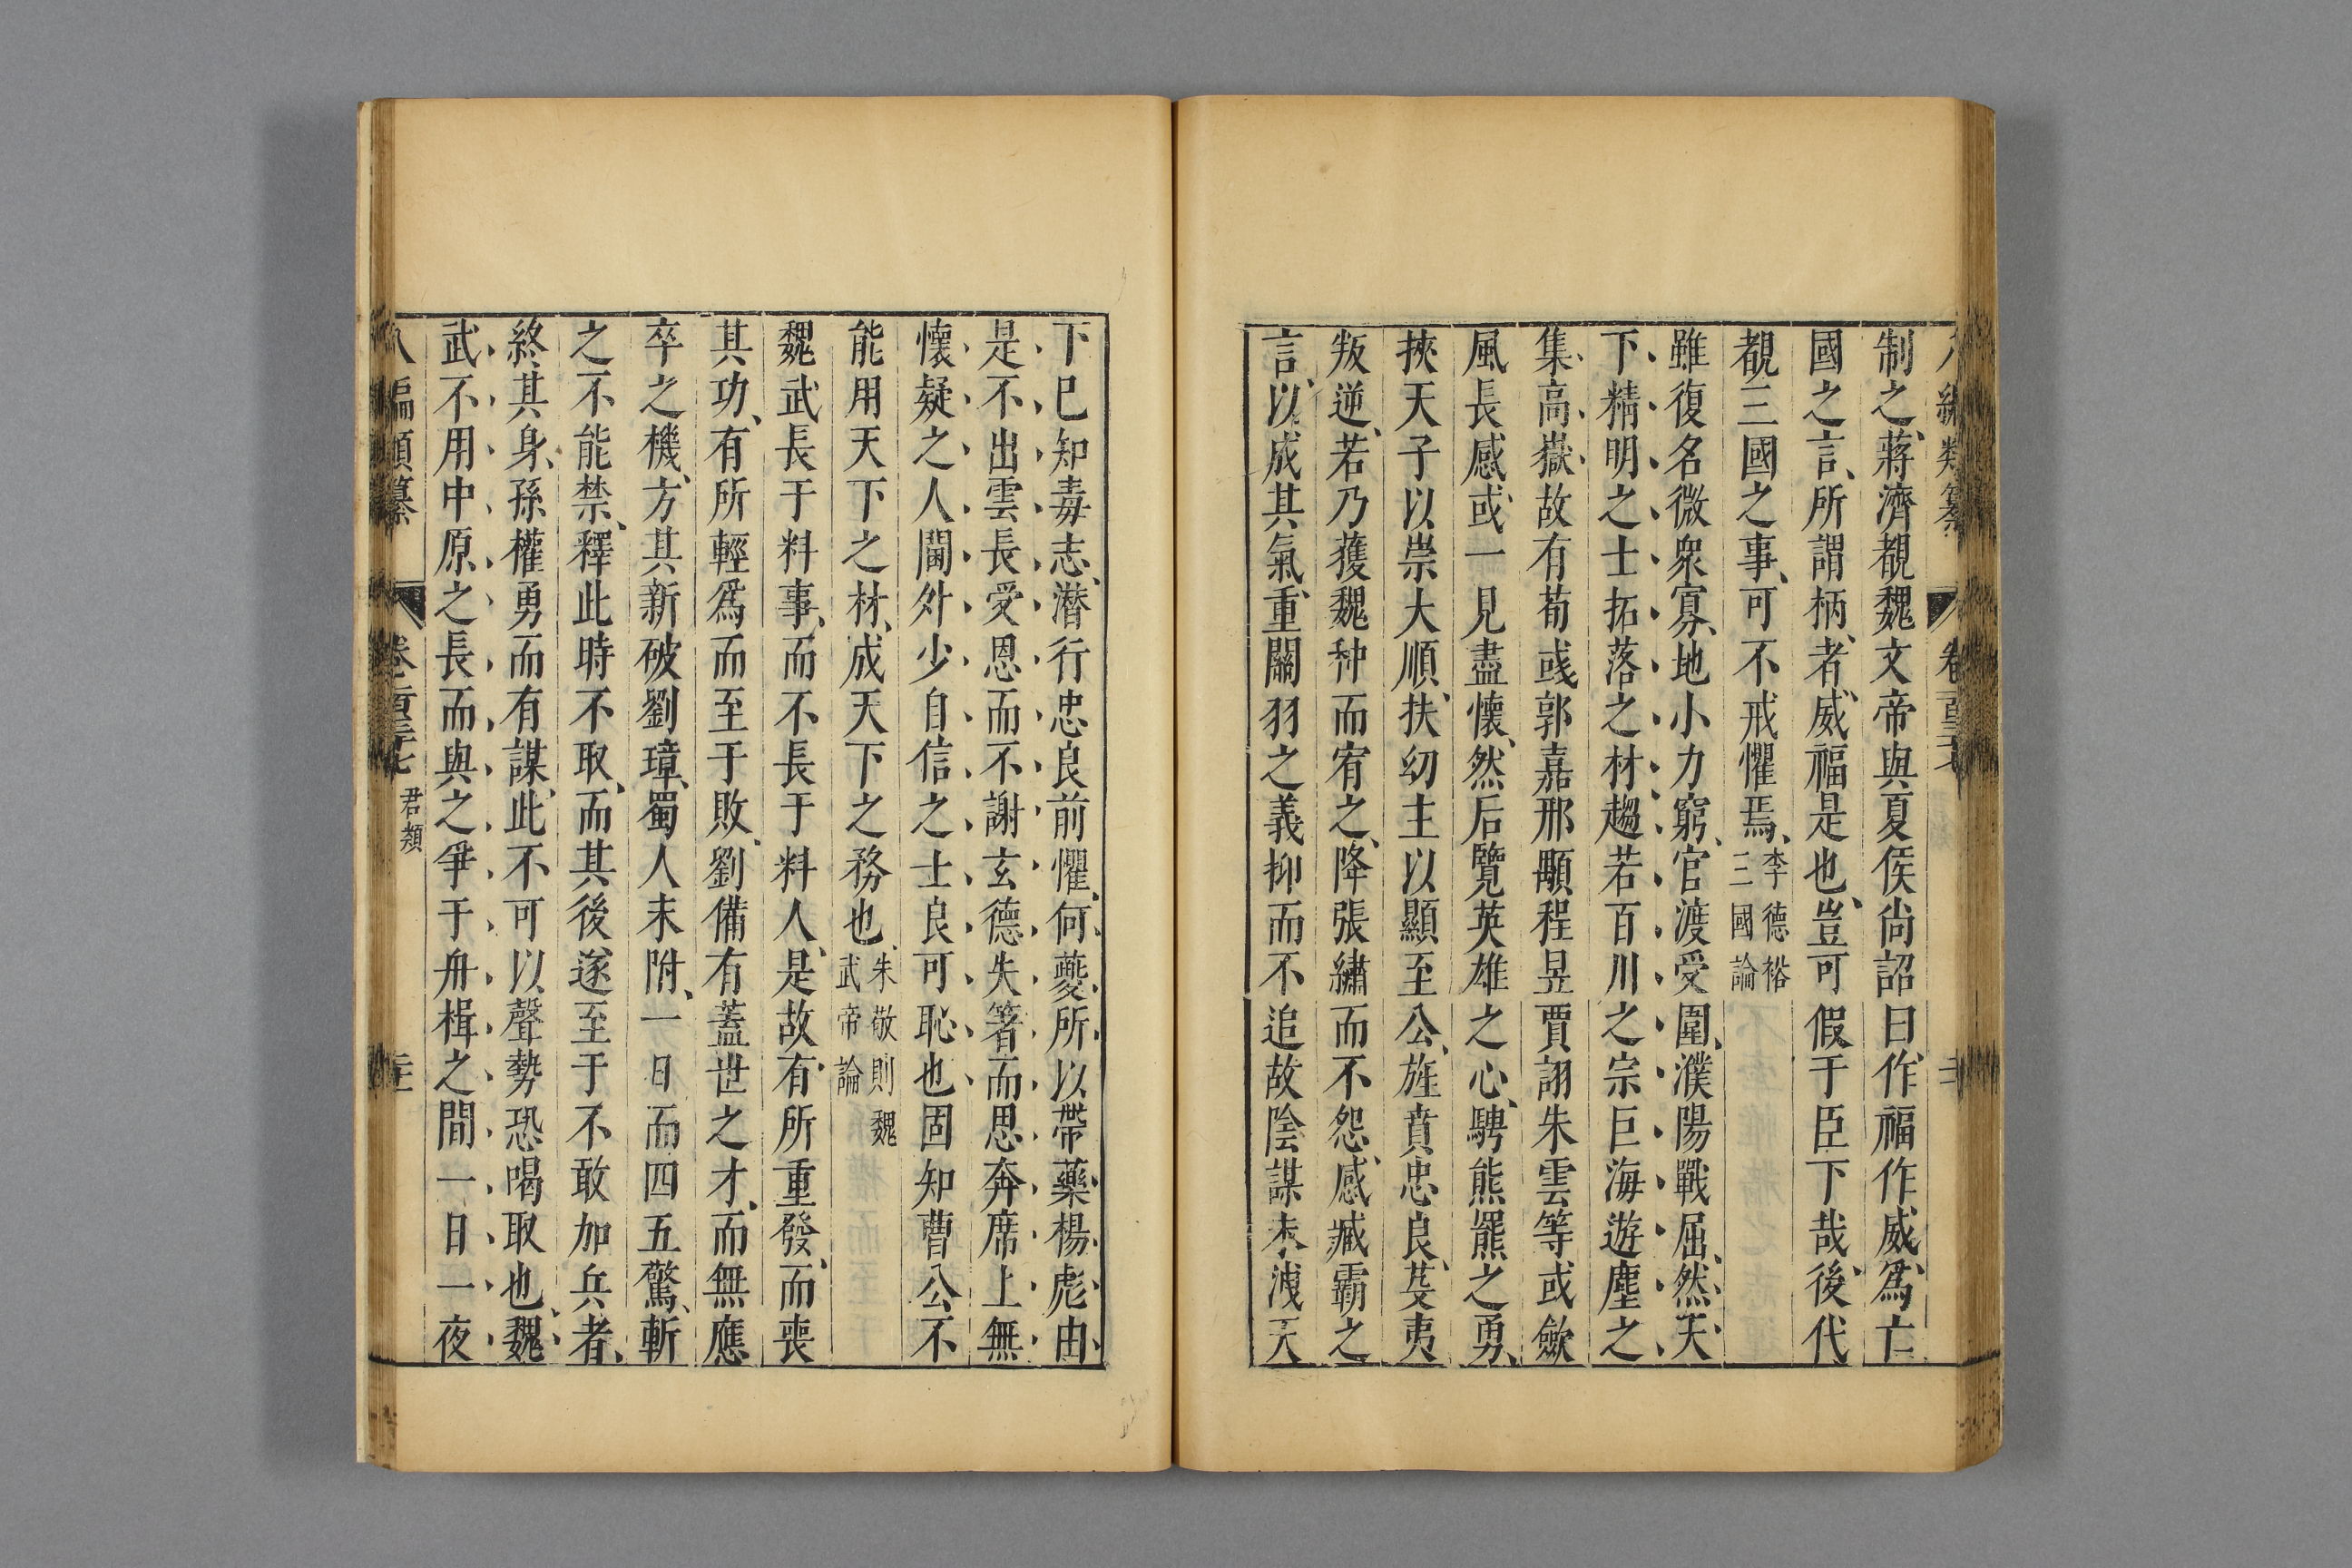 八編類纂 卷百三十七
制之蔣濟覩魏文帝與夏侯尚詔曰作福作威爲亡
國之言所謂柄者威福是也豈可假于臣下哉後代
覩三國之事可不戒懼焉李德裕三國論
雖復名微衆寡地小力窮官渡受圍濮陽戰屈然天
下精明之士拓落之材趨若百川之宗巨海遊塵之
集高嶽故有荀彧郭嘉邢顒程昱賈詡朱雲等或歛
風長感或一見盡懷然后覽英雄之心騁熊羆之勇
挾天子以崇大順扶幼主以顯至公旌賁忠良芟夷
叛逆若乃獲魏种而宥之降張繡而不怨感臧霸之
言以成其氣重關羽之義抑而不追故陰謀未洩天
下已知毒志潜行忠良前懼何夔所以帶藥楊彪由
是不出雲長受恩而不謝玄德失箸而思奔席上無
懷疑之人閫外少自信之士良可恥也固知曹公不
能用天下之材成天下之務也朱敬則魏武帝論
魏武長于料事而不長于料人是故有所重發而喪
其功有所輕爲而至于敗劉備有蓋世之才而無應
卒之機方其新破劉璋蜀人未附一日而四五驚斬
之不能禁釋此時不取而其後遂至于不敢加兵者
終其身孫權勇而有謀此不可以聲勢恐喝取也魏
武不用中原之長而與之爭于舟楫之間一日一夜
八編類纂 卷百三十七 君類